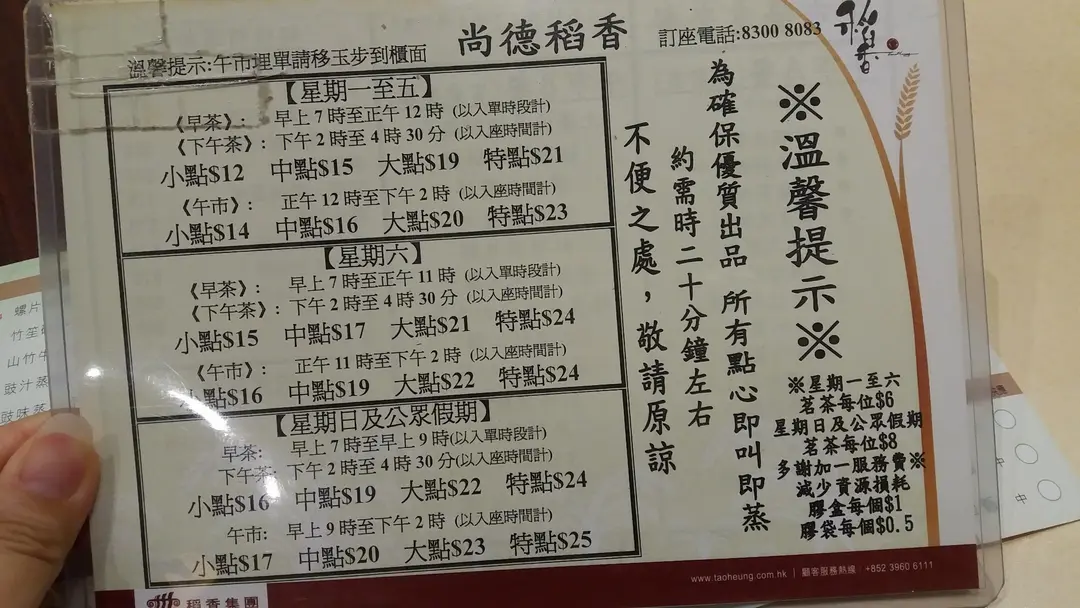 溫馨提示:午市埋單請移玉步到櫃面
尚德稻香
訂座電話:8300 8083
稻香
【星期一至五】
《早茶》: 早上 7 時至正午 12 時 (以入單時段計)
《下午茶》: 下午 2 時至 4 時 30 分 (以入座時間計)
小點$12 中點$15 大點$19 特點$21
《午市》: 正午 12 時至下午 2 時 (以入座時間計)
小點$14 中點$16 大點$20 特點$23
【星期六】
《早茶》: 早上 7 時至正午 11 時 (以入單時段計)
《下午茶》: 下午 2 時至 4 時 30 分 (以入座時間計)
小點$15 中點$17 大點$21 特點$24
《午市》: 正午 11 時至下午 2 時 (以入座時間計)
小點$16 中點$19 大點$22 特點$24
【星期日及公眾假期】
早茶: 早上 7 時至早上 9 時(以入單時段計)
下午茶: 下午 2 時至 4 時 30 分(以入座時間計)
小點$16 中點$19 大點$22 特點$24
午市: 早上 9 時至下午 2 時 (以入座時間計)
小點$17 中點$20 大點$23 特點$25
※溫馨提示※
為確保優質出品 所有點心即叫即蒸
約需時二十分鐘左右
不便之處，敬請原諒
※星期一至六
茗茶每位$6
星期日及公眾假期
茗茶每位$8
多謝加一服務費※
減少資源損耗
膠盒每個$1
膠袋每個$0.5
稻香集團
www.taoheung.com.hk | 顧客服務熱線 : +852 3960 6111
螺片
竹笙
山竹牛
豉汁蒸
豉味蒸
中
中